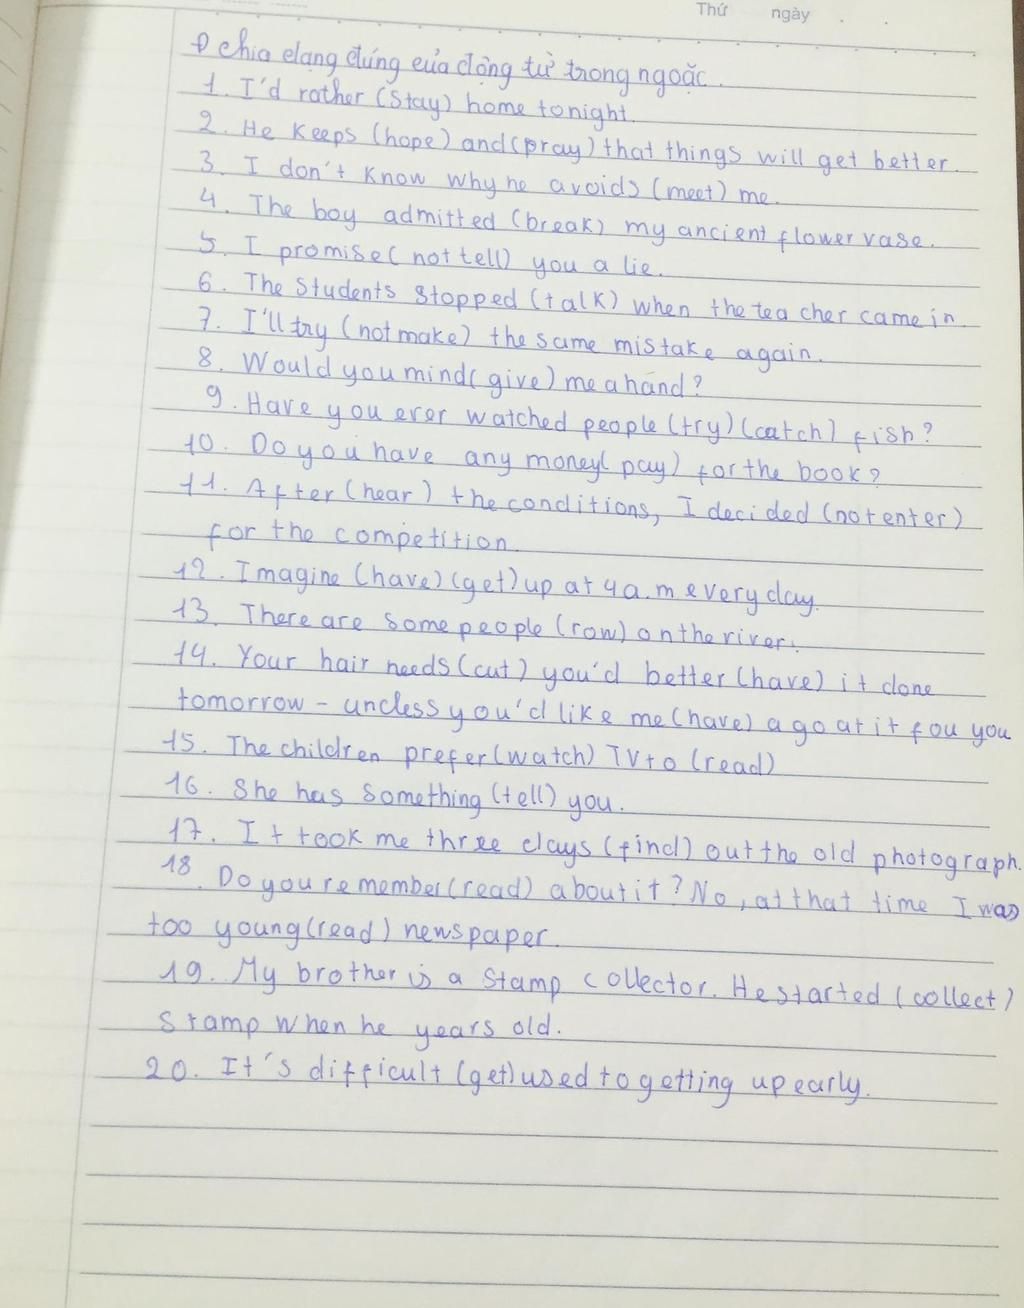 Thứ ngày . .
Đ chia dạng đúng của động từ trong ngoặc.
1. I'd rather (stay) home tonight.
2. He keeps (hope) and (pray) that things will get better.
3. I don't know why he avoids (meet) me.
4. The boy admitted (break) my ancient flower vase.
5. I promise (not tell) you a lie.
6. The students stopped (talk) when the teacher came in.
7. I'll try (not make) the same mistake again.
8. Would you mind (give) me a hand?
9. Have you ever watched people (try) (catch) fish?
10. Do you have any money (pay) for the book?
11. After (hear) the conditions, I decided (not enter)
for the competition.
12. Imagine (have) (get) up at 4 a.m every day.
13. There are some people (row) on the river.
14. Your hair needs (cut) you'd better (have) it done
tomorrow - uncless you'd like me (have) a go at it fou you
15. The children prefer (watch) TV to (read)
16. She has something (tell) you.
17. It took me three days (find) out the old photograph.
18. Do you remember (read) about it? No, at that time I was
too young (read) newspaper.
19. My brother is a stamp collector. He started (collect)
stamp when he years old.
20. It's difficult (get) used to getting up early.